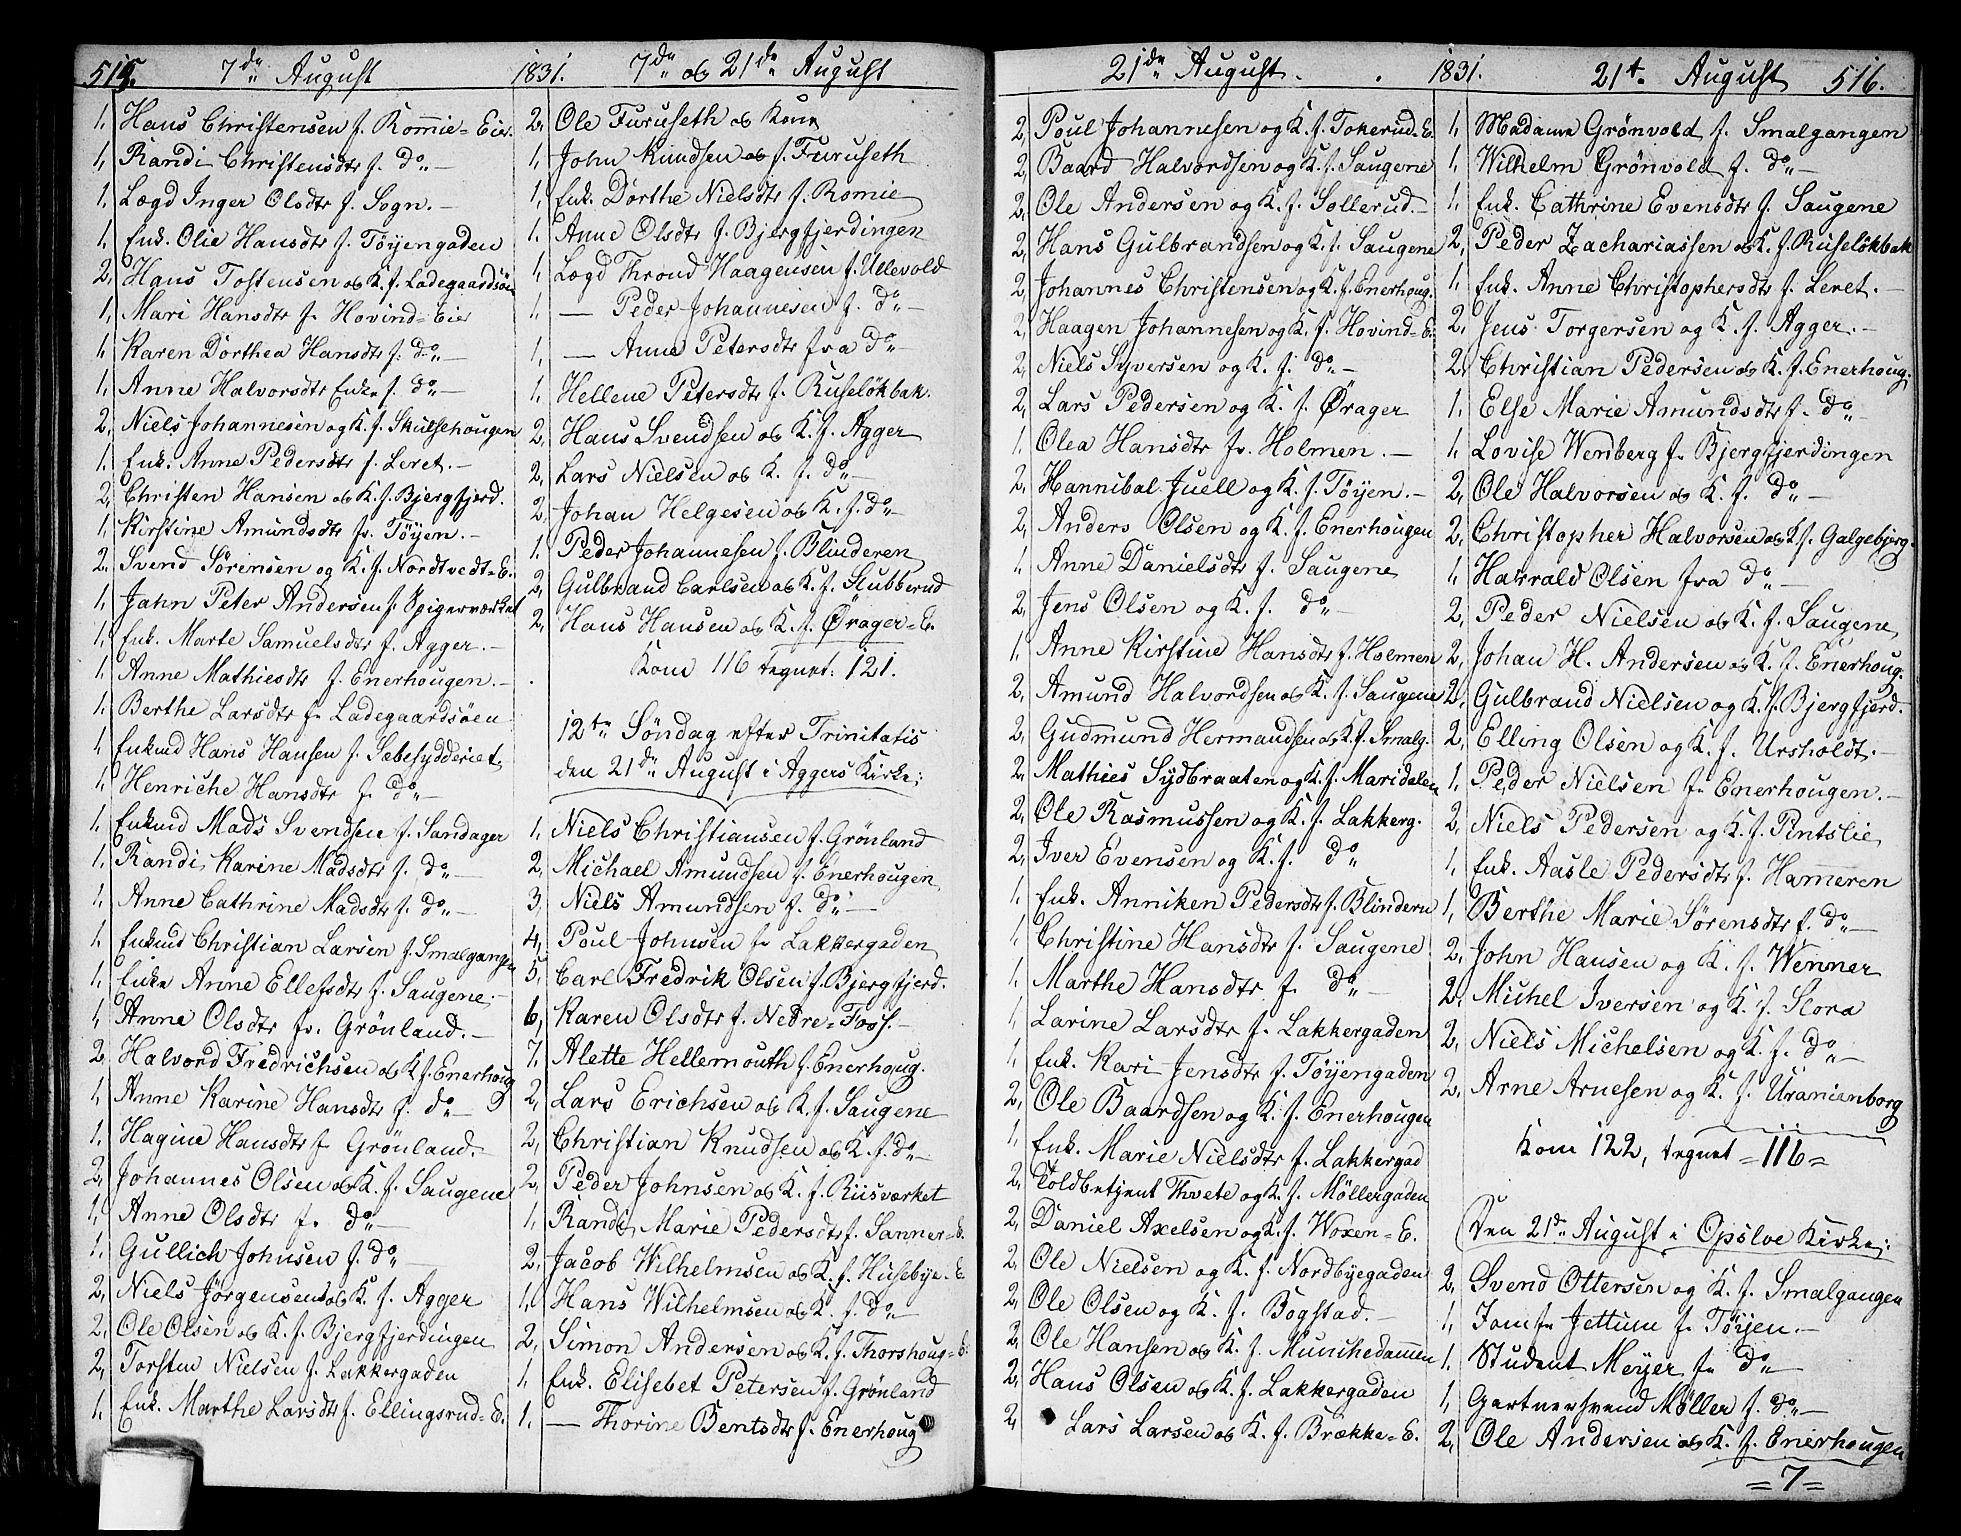 515. 7de August 1831. 7de og 21de August
1. Hans Christensen f. Rommie=Eier.
1. Randi Christensdtr f. do
1. Lægd Inger Olsdtr f. Sogn.
1. Enk. Olie Hansdtr f. Töyengaden
2. Hans Tostensen og K. f. Ladegaardsöen
1. Mari Hansdtr f. Hovind=Eier
1. Karen Dorthea Hansdtr f. do
1. Anne Halvorsdtr Enke f. do
2. Niels Johannesen og K. f. Skulsehougen
1. Enk. Anne Pedersdtr f. Leret.
2. Christen Hansen og K. f. Bjergfjerd.
1. Kirstine Amundsdtr fr. Töyen.
2. Svend Sörensen og K. f. Nordtvedt=E.
1. Jahn Peter Andersen f. Spigerværket
1. Enk. Marte Samuelsdtr f. Agger.
1. Anne Mathiesdtr f. Enerhougen.
1. Berthe Larsdtr fr Ladegaardsöen
1. Enkmd Hans Hansen f. Sebesydderiet
1. Henriche Hansdtr f. do
1. Enkmd Mads Svendsen f. Sandager
1. Randi Karine Madsdtr f. do
1. Anne Cathrine Madsdtr f. do
1. Enkmd Christian Larsen f. Smalgangen
1. Enke Anne Ellefsdtr f. Saugene.
1. Anne Olsdtr fr. Grönland.
2. Halvord Fredrichsen og K f. Enerhoug
1. Anne Karine Hansdtr f. do
1. Hagine Hansdtr fr Grönland.
2. Johannes Olsen og K. f. Saugene
1. Anne Olsdtr fr. do
1. Gullich Johnsen f. do
2. Niels Jörgensen og K. f. Agger
2. Ole Olsen og K. f. Bjergfjerdingen
2. Torsten Nielsen f. Lakkergaden
1. Enk. Marthe Larsdtr f. Ellingsrud=E.
2. Ole Furuseth og Kone
1. John Knudsen og f. Furuseth
1. Enk. Dorthe Nielsdtr f. Romie
1. Anne Olsdtr f. Bjergfjerdingen
1. Lægd Thrond Haagensen f. Ullevold
1. — Peder Johannesen f. do
1. — Anne Petersdtr fra do
1. Hellene Petersdtr f. Ruselökbak.
2. Hans Svendsen og K. f. Agger
2. Lars Nielsen og K. f. do
2. Johan Helgesen og K. f. do
1. Peder Johannesen f. Blinderen
2. Gulbrand Carlsen og K. f. Slubberud
2. Hans Hansen og K. f. Örager=E.
Kom 116 tegnet: 121.
12te Söndag efter Trinitatis
den 21de August i Aggers Kirke:
1. Niels Christiansen f. Grönland
2. Michael Amundsen f. Enerhougen
3. Niels Amundsen f. do
4. Poul Johnsen fr Lakkergaden
5. Carl Fredrik Olsen f. Bjergfjerd.
6. Karen Olsdtr f. Nedre=Foss.
7. Alette Hellemouth f. Enerhoug.
2. Lars Erichsen og K. f. Saugene
2. Christian Knudsen og K. f. do
2. Peder Johnsen og K. f. Riisværket
1. Randi Marie Pedersdtr f. Sanner=E.
2. Jacob Wilhelmsen og K. f. Husebye=E
1. Hans Wilhelmsen og K. f. do
2. Simon Andersen og K. f. Thorshoug=E.
1. Enk. Elisebet Petersen f. Grönland
1. — Thorine Bentsdtr f. Enerhoug
21de August. 1831. 21t. August 516.
2. Poul Johannesen og K. f. Tokerud=E.
2. Baard Halvordsen og K. f. Saugene
2. Ole Andersen og K. f. Sollerud.
2. Hans Gulbrandsen og K. f. Saugene
2. Johannes Christensen og K. f. Enerhoug.
2. Haagen Johannesen og K. f. Hovind=E.
2. Niels Syversen og K. f. do
2. Lars Pedersen og K. f. Örager
1. Olea Hansdtr fr. Holmen.
2. Hannibal Juell og K. f. Töyen.
2. Anders Olsen og K. f. Enerhougen
1. Anne Danielsdtr f. Saugene
2. Jens Olsen og K. f. do
1. Anne Kirstine Hansdtr f. Holmen
2. Amund Halvordsen og K. f. Saugene
2. Gudmund Hermandsen og K. f. Smalg.
2. Mathies Sydbraaten og K. f. Maridalen
2. Ole Rasmussen og K. f. Lakkerg.
2. Iver Evensen og K. f. do
1. Enk. Anniken Pedersdtr f. Blindern
1. Christine Hansdtr f. Saugene
1. Marthe Hansdtr f. do
1. Larine Larsdtr f. Lakkergaden
1. Enk. Kari Jensdtr f. Töyengaden
2. Ole Baardsen og K. f. Enerhougen
1. Enk. Marie Nielsdtr f. Lakkergad
2. Toldbetjent Thvete og K. f. Möllergaden
2. Daniel Axelsen og K. f. Woxen=E.
2. Ole Nielsen og K. f. Nordbyegaden
2. Ole Olsen og K. f. Bogstad.
2. Ole Hansen og K. f. Munchedammen
2. Hans Olsen og K. f. Lakkergaden
2. Lars Larsen og K. f. Brække=E.
1. Madame Grönvold f. Smalgangen
1. Wilhelm Grönvold f. do
1. Enk. Cathrine Evensdtr f. Saugene
2. Peder Zachariassen og K. f. Ruselökbak
1. Enk. Anne Christophersdtr f. Leret.
2. Jens Torgersen og K. f. Agger.
2. Christian Pedersen og K. f. Enerhoug.
1. Else Marie Amundsdtr f. do
1. Lovise Wenberg fr Bjergfjerdingen
2. Ole Halvorsen og K. f. do
2. Christopher Halvorsen og K f. Galgebjerg.
1. Harrald Olsen fra do
2. Peder Nielsen og K. f. Saugene
2. Johan H. Andersen og K. f. Enerhoug.
2. Gulbrand Nielsen og K. f. Bjergfjerd.
2. Elling Olsen og K. f. Ursholdt.
1. Peder Nielsen fr Enerhougen.
2. Niels Pedersen og K. f. Pintslie
1. Enk. Aasle Pedersdtr f. Hammeren
1. Berthe Marie Sörensdtr f. do
2. John Hansen og K. f. Wenner
2. Michel Iversen og K. f. Slora
2. Niels Michelsen og K. f. do
2. Arne Arnesen og K. f. Uranienborg
Kom 122, tegnet =116=
Den 21de August i Opsloe Kirke:
2. Svend Ottersen og K. f. Smalgangen
1. Jomfr Jettum fr Töyen.
1. Student Meyer fr do
1. Gartnersvend Möller f. do
2. Ole Andersen og K. f. Enerhougen
=7=